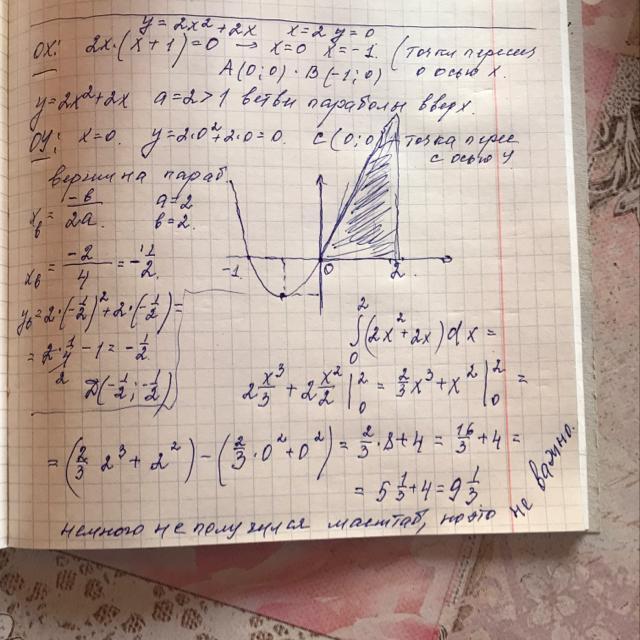 y = 2x² + 2x   x = 2   y = 0
OX: 2x·(x+1) = 0 → x = 0   x = -1. (точки пересеч
A(0; 0) · B(-1; 0)   с осью x.
y = 2x² + 2x   a = 2 > 1 ветви параболы вверх.
OY: x = 0.   y = 2·0² + 2·0 = 0.   C(0; 0) точка перес
с осью y
вершина параб
x_в = -в/2a   a = 2
в = 2.
x_в = -2/4 = -1/2
-1   0   2
y_в = 2·(-1/2)² + 2·(-1/2) =
= 2·1/4 - 1 = -1/2
D(-1/2; -1/2)
∫₀² (2x² + 2x) dx =
2 x³/3 + 2 x²/2 |₀² = 2/3 x³ + x² |₀² =
= (2/3 · 2³ + 2²) - (2/3 · 0² + 0²) = 2/3 · 8 + 4 = 16/3 + 4 =
= 5 1/3 + 4 = 9 1/3
немного не получился масштаб, но это не важно.